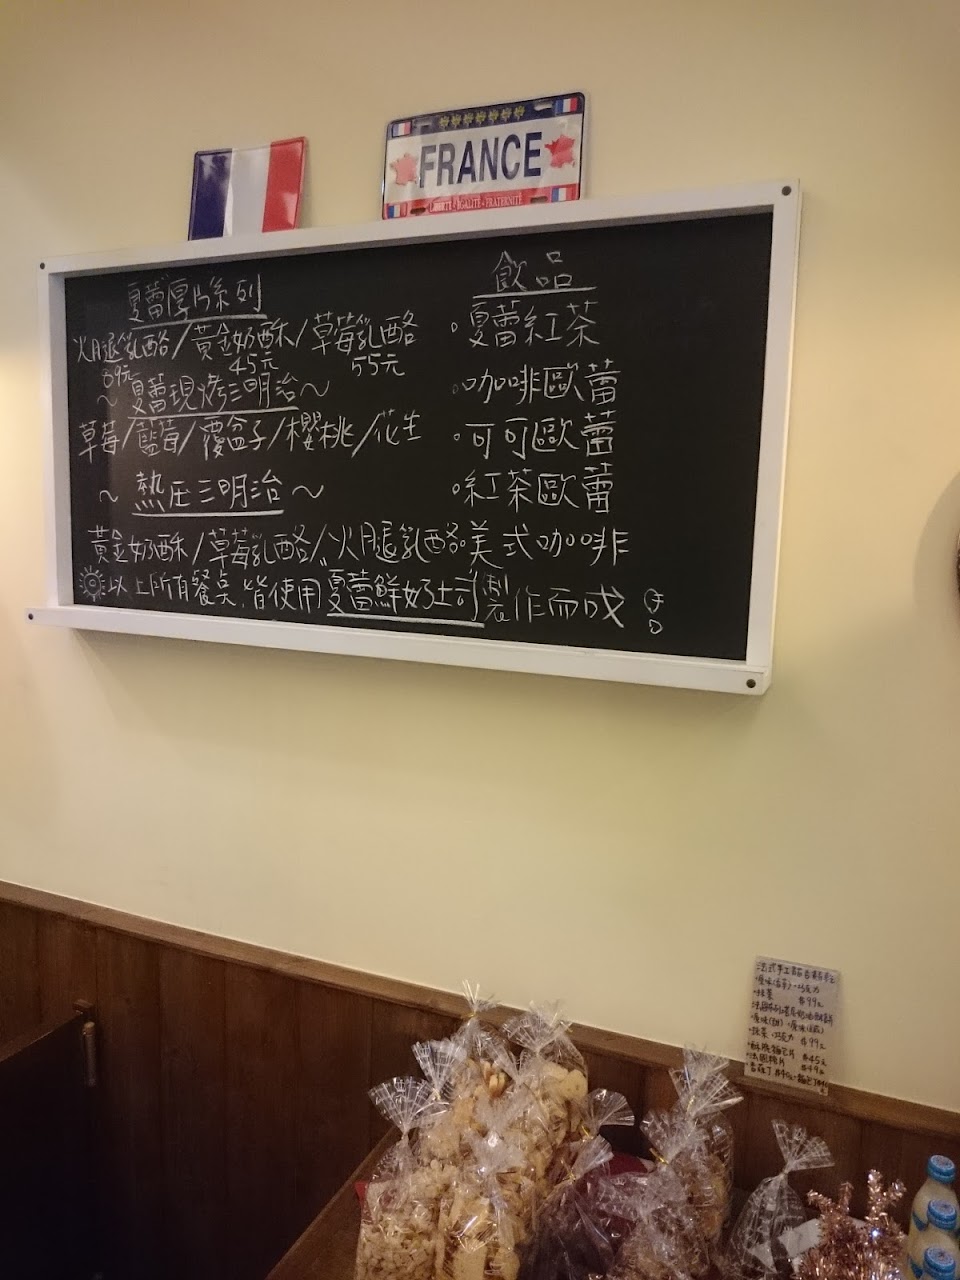 FRANCE
LIBERTÉ - ÉGALITÉ - FRATERNITÉ
夏蕾厚片系列
火腿乳酪/黃金奶酥/草莓乳酪
89元 45元 55元
~夏蕾現烤三明治~
草莓/藍莓/覆盆子/櫻桃/花生
~熱压三明治~
黃金奶酥/草莓乳酪/火腿乳酪
飲品
夏蕾紅茶
咖啡歐蕾
可可歐蕾
紅茶歐蕾
美式咖啡
以上所有餐桌,皆使用夏蕾鮮奶土司製作而成
法式手工
$99元
抹茶 巧克力 $99元
$45元
$49元